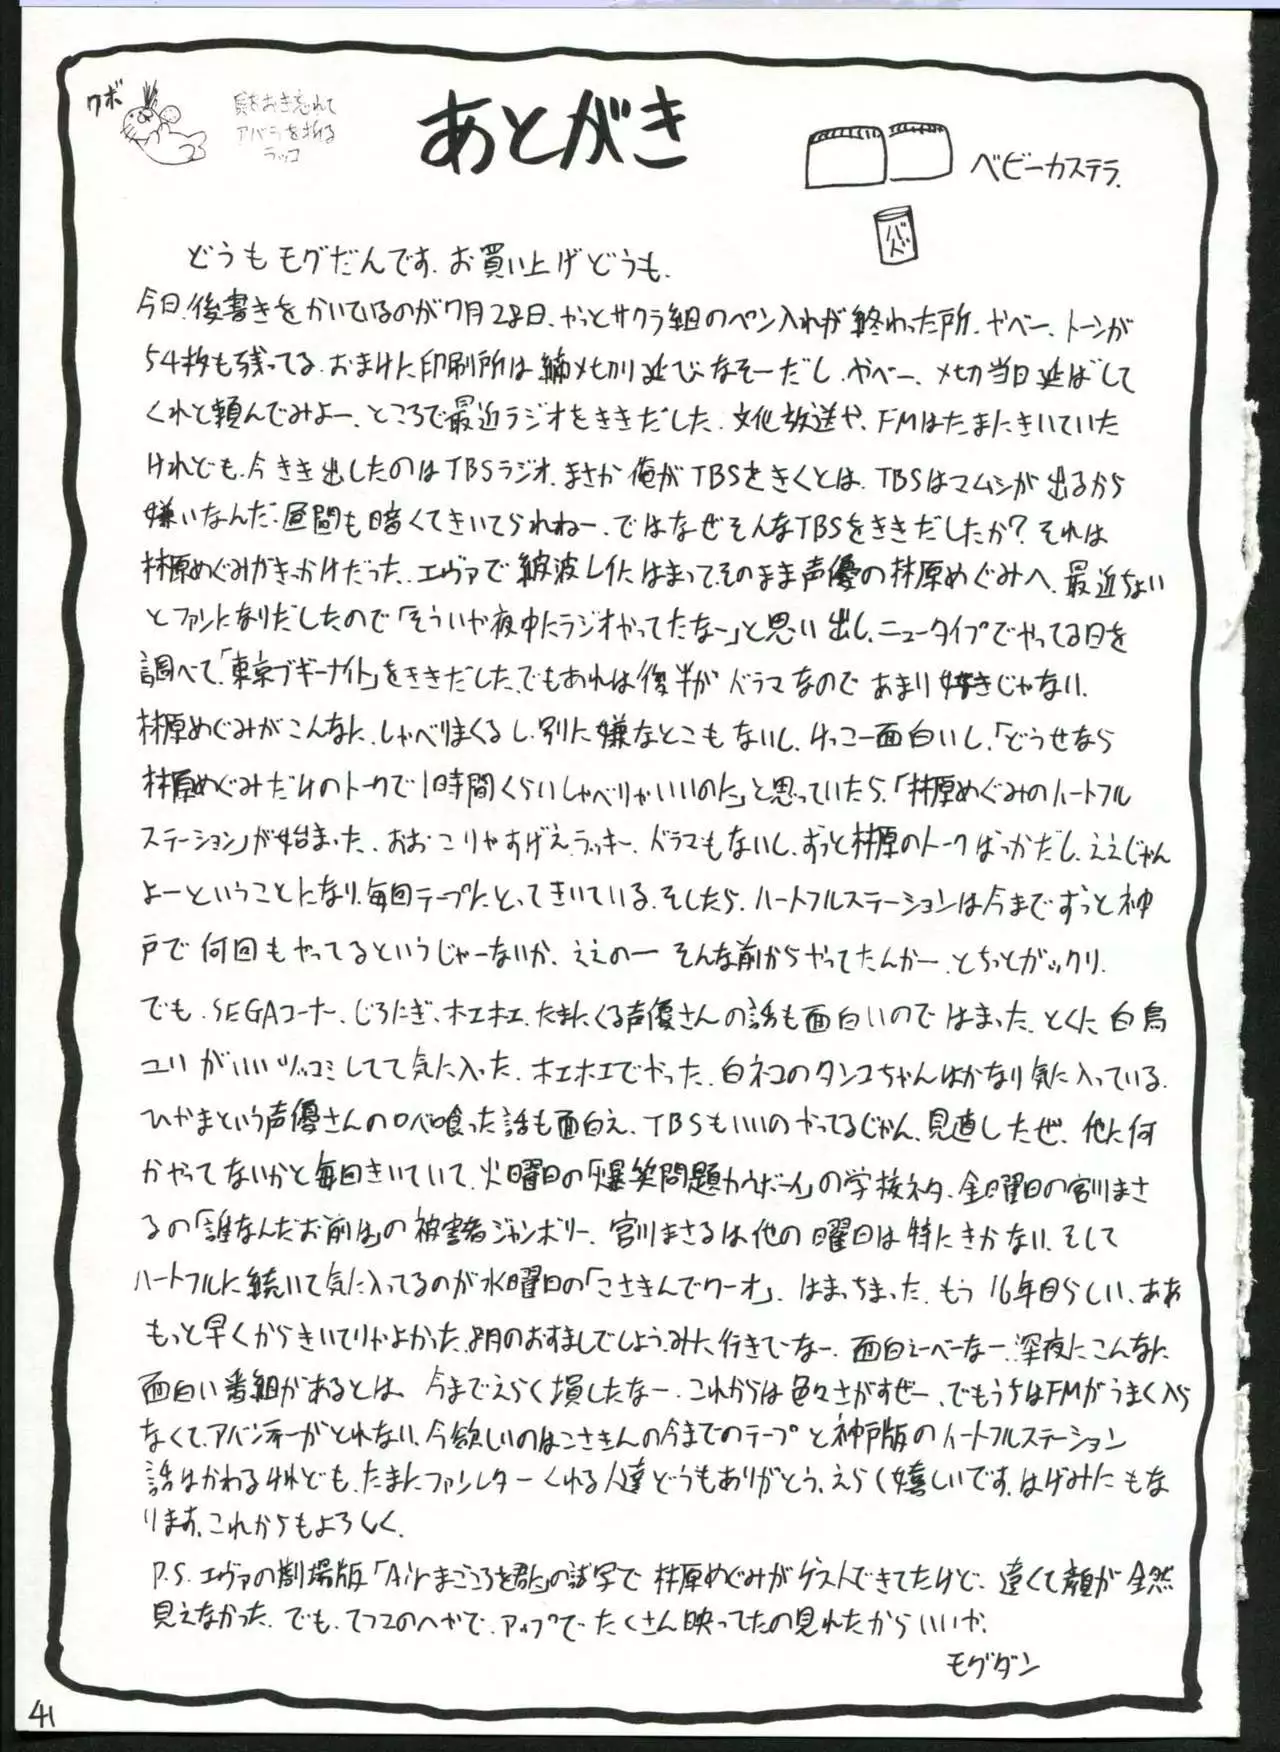 クボ
貝をおき忘れて
アバラを折る
ラッコ
あとがき
ベビーカステラ.
どうもモグだんです.お買い上げどうも.
今日、後書きをかいているのが7月28日、やっとサクラ組のペン入れが終わった所、やべー、トーンが
54枚も残ってる.おまけに印刷所は締メ切り延びなそーだし、やべー、メ切当日延ばして
くれと頼んでみよー、ところで最近ラジオをききだした.文化放送や、FMはたまにきいていた
けれども、今きき出したのはTBSラジオ.まさか俺がTBSをきくとは、TBSはマムシが出るから
嫌いなんだ.昼間も暗くてきいてられねー、ではなぜそんなTBSをききだしたか?それは
林原めぐみがきっかけだった.エヴァで綾波レイにはまって、そのまま声優の林原めぐみへ、最近ちょい
とファンになりだしたので「そういや夜中にラジオやってたなー」と思い出し、ニュータイプでやってる日を
調べて、「東京ブギーナイト」をききだした、でもあれは後半がドラマなのであまり好きじゃない.
林原めぐみがこんなに、しゃべりまくるし、別に嫌なとこもないし、けっこー面白いし、「どうせなら
林原めぐみだけのトークで1時間くらいしゃべりゃいいのに」と思っていたら、「林原めぐみのハートフル
ステーション」が始まった、おおこりゃすげえラッキー、ドラマもないし、ずっと林原のトークばっかだし、ええじゃん
よーということになり、毎回テープにとってきいている.そしたら、ハートフルステーションは今までずっと神
戸で何回もやってるというじゃーないか、ええのーそんな前からやってたんかー、とちっとガックリ.
でも、SEGAコーナー、じろたぎ、ホエホエ、たまにくる声優さんの話も面白いのではまった、とくに白鳥
ユリがいいツッコミしてて気に入った、ホエホエでやった、白ネコのタンコちゃんはかなり気に入っている.
ひやまという声優さんのロベ喰った話も面白え、TBSもいいのやってるじゃん、見直したぜ、他に何
かやってないかと毎回きいていて、火曜日の「爆笑問題カウボーイ」の学校ネタ、金曜日の宮川まさ
るの「誰なんだお前は」の被害者ジャンボリー、宮川まさるは他の曜日は特にきかない.そして
ハートフルに続いて気に入ってるのが水曜日の「こさきんでワーオ」、はまっちまった.もう16年目らしい、ああ
もっと早くからきいてりゃよかった、8月のおすましでしょう.みに行きてーなー.面白えーべーなー.深夜にこんなに
面白い番組があるとは、今までえらく損したなー、これからは色々さがすぜー、でもうちはFMがうまく入ら
なくて、アバンティーがとれない、今欲しいのはこさきんの今までのテープと神戸版のハートフルステーション
話はかわるけれども、たまにファンレターくれる人達どうもありがとう、えらく嬉しいです、はげみにもな
ります.これからもよろしく.
P.S.エヴァの劇場版「Air まごころを君に」の試写で林原めぐみがゲストできてたけど、遠くて顔が全然
見えなかった、でも、てつこのへやで、アップでたくさん映ってたの見れたからいいか.
モグダン
41